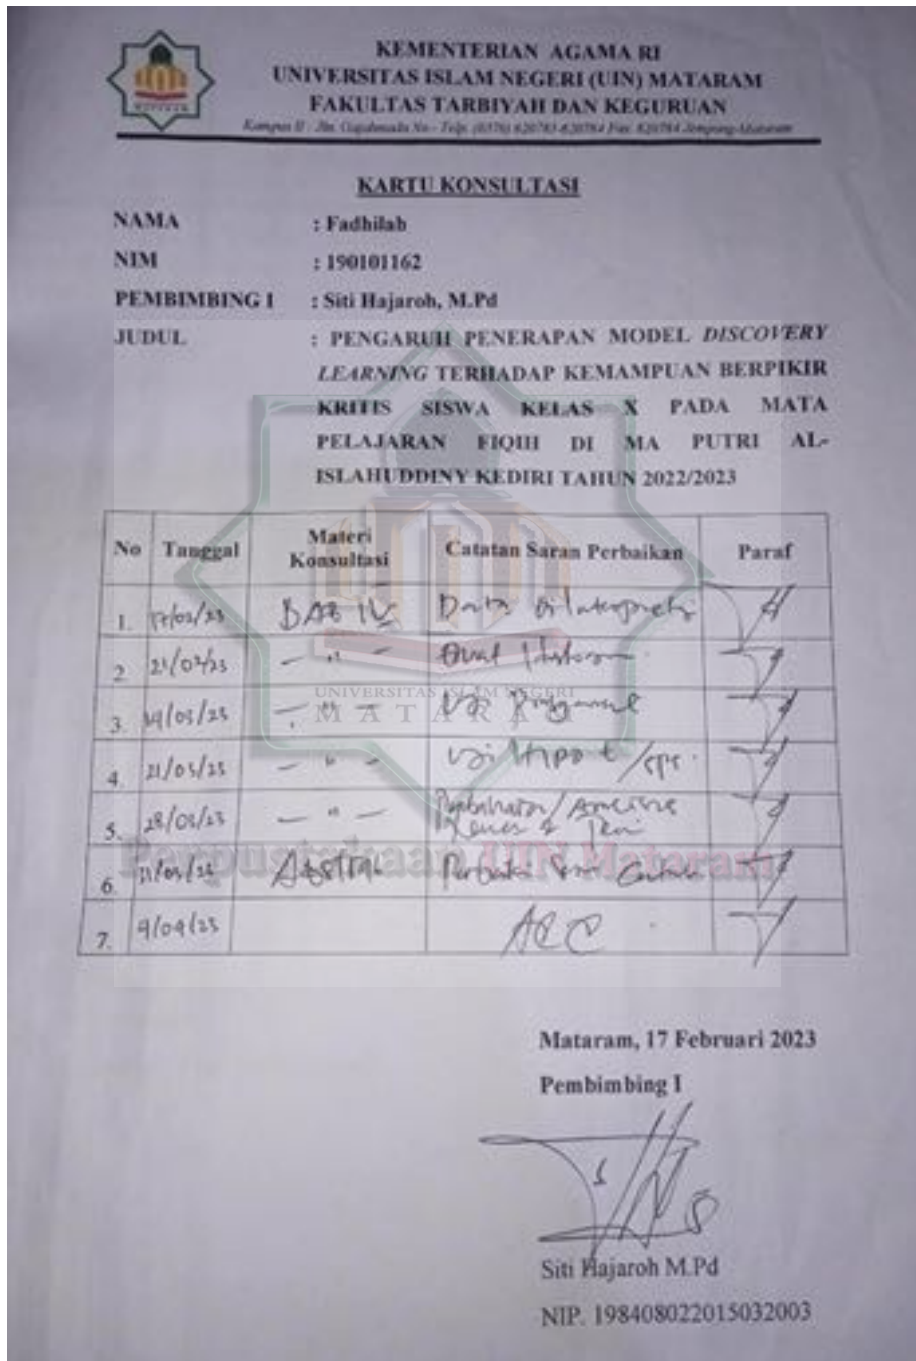 KEMENTERIAN AGAMA RI
UNIVERSITAS ISLAM NEGERI (UIN) MATARAM
FAKULTAS TARBIYAH DAN KEGURUAN
Kampus II : Jln. Gajahmada No - Telp. (0370) 620783-620784 Fax. 620784 Jempong-Mataram
MATARAM
KARTU KONSULTASI
NAMA : Fadhilah
NIM : 190101162
PEMBIMBING I : Siti Hajaroh, M.Pd
JUDUL : PENGARUH PENERAPAN MODEL DISCOVERY
LEARNING TERHADAP KEMAMPUAN BERPIKIR
KRITIS SISWA KELAS X PADA MATA
PELAJARAN FIQIH DI MA PUTRI AL-
ISLAHUDDINY KEDIRI TAHUN 2022/2023
No Tanggal Materi Konsultasi Catatan Saran Perbaikan Paraf
1. 17/02/23 BAB IV Data
2. 21/02/23 - " -
3. /03/23 - " -
4. 21/03/23 - " - Uji
5. 28/03/23 - " - Pembahasan/
6. 31/03/23 Abstrak
7. 9/04/23 ACC
UNIVERSITAS ISLAM NEGERI
MATARAM
Perpustakaan UIN Mataram
Mataram, 17 Februari 2023
Pembimbing I
Siti Hajaroh M.Pd
NIP. 198408022015032003